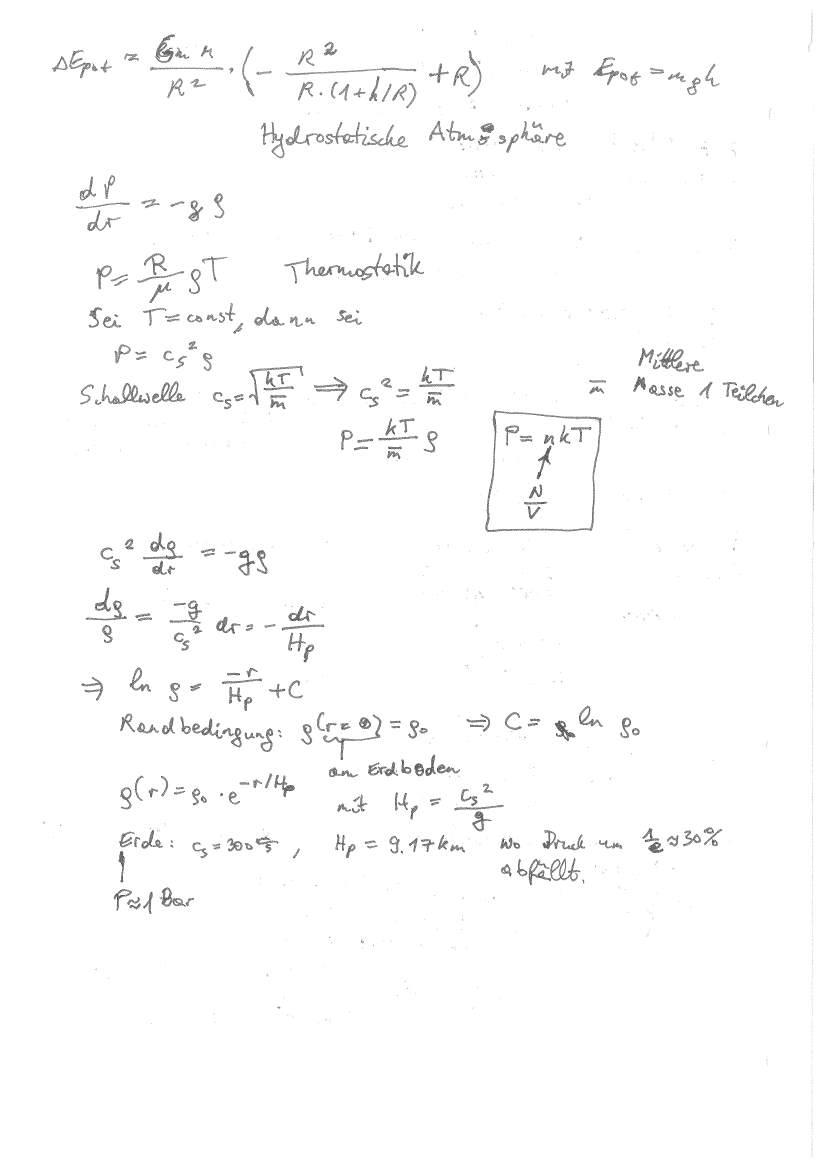 ΔE_pot ≈ GmM/R² · (− R²/(R·(1+h/R)) + R) mit E_pot = mgh
Hydrostatische Atmosphäre
dP/dr = −gρ
P = R/μ ρT Thermostatik
Sei T = const, dann sei
P = c_s² ρ
Mittlere
Schallwelle c_s = √(kT/m̄) ⟹ c_s² = kT/m̄ m̄ Masse 1 Teilchen
P = kT/m̄ ρ P = nkT
N/V
c_s² dρ/dr = −gρ
dρ/ρ = −g/c_s² dr = − dr/H_p
⇒ ln ρ = −r/H_p + C
Randbedingung: ρ(r = 0) = ρ₀ ⇒ C = ln ρ₀
am Erdboden
ρ(r) = ρ₀ · e^(−r/H_p) mit H_p = c_s²/g
Erde: c_s = 300 m/s, H_p = 9.17 km wo Druck um 1/e ≈ 30%
abfällt.
P ≈ 1 Bar